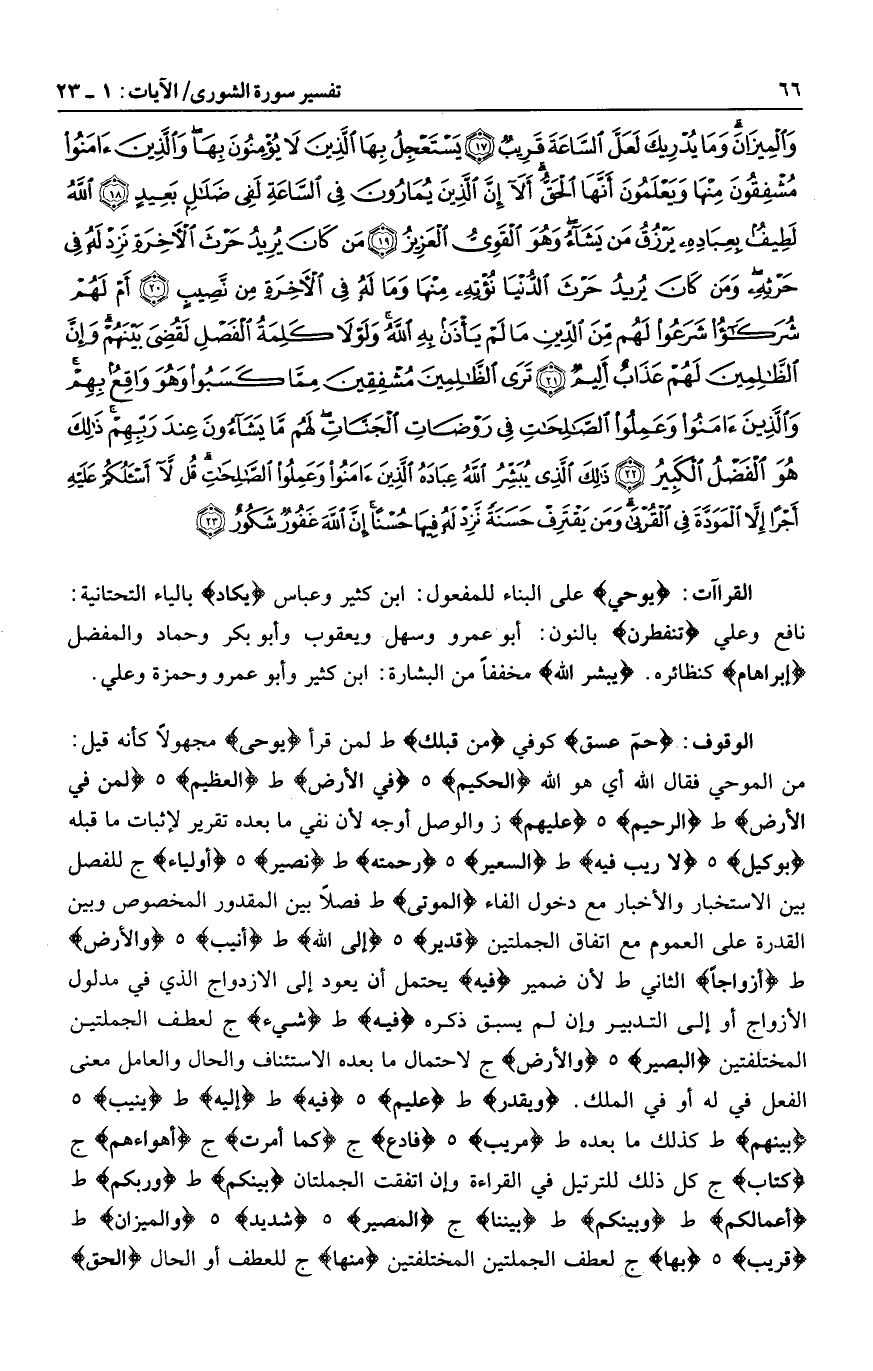 ٦٦ تفسير سورة الشورى/ الآيات: ١ ـ ٢٣
وَٱلْمِيزَانَۗ وَمَا يُدْرِيكَ لَعَلَّ ٱلسَّاعَةَ قَرِيبٌ ﴿١٧﴾ يَسْتَعْجِلُ بِهَا ٱلَّذِينَ لَا يُؤْمِنُونَ بِهَاۖ وَٱلَّذِينَ ءَامَنُوا۟
مُشْفِقُونَ مِنْهَا وَيَعْلَمُونَ أَنَّهَا ٱلْحَقُّۗ أَلَآ إِنَّ ٱلَّذِينَ يُمَارُونَ فِى ٱلسَّاعَةِ لَفِى ضَلَٰلٍۭ بَعِيدٍ ﴿١٨﴾ ٱللَّهُ
لَطِيفٌۢ بِعِبَادِهِۦ يَرْزُقُ مَن يَشَآءُۖ وَهُوَ ٱلْقَوِىُّ ٱلْعَزِيزُ ﴿١٩﴾ مَن كَانَ يُرِيدُ حَرْثَ ٱلْأَخِرَةِ نَزِدْ لَهُۥ فِى
حَرْثِهِۦۖ وَمَن كَانَ يُرِيدُ حَرْثَ ٱلدُّنْيَا نُؤْتِهِۦ مِنْهَا وَمَا لَهُۥ فِى ٱلْأَخِرَةِ مِن نَّصِيبٍ ﴿٢٠﴾ أَمْ لَهُمْ
شُرَكَٰٓؤُا۟ شَرَعُوا۟ لَهُم مِّنَ ٱلدِّينِ مَا لَمْ يَأْذَنۢ بِهِ ٱللَّهُۚ وَلَوْلَا كَلِمَةُ ٱلْفَصْلِ لَقُضِىَ بَيْنَهُمْۗ وَإِنَّ
ٱلظَّٰلِمِينَ لَهُمْ عَذَابٌ أَلِيمٌ ﴿٢١﴾ تَرَى ٱلظَّٰلِمِينَ مُشْفِقِينَ مِمَّا كَسَبُوا۟ وَهُوَ وَاقِعٌۢ بِهِمْۗ
وَٱلَّذِينَ ءَامَنُوا۟ وَعَمِلُوا۟ ٱلصَّٰلِحَٰتِ فِى رَوْضَاتِ ٱلْجَنَّاتِۖ لَهُم مَّا يَشَآءُونَ عِندَ رَبِّهِمْۚ ذَٰلِكَ
هُوَ ٱلْفَضْلُ ٱلْكَبِيرُ ﴿٢٢﴾ ذَٰلِكَ ٱلَّذِى يُبَشِّرُ ٱللَّهُ عِبَادَهُ ٱلَّذِينَ ءَامَنُوا۟ وَعَمِلُوا۟ ٱلصَّٰلِحَٰتِۗ قُل لَّآ أَسْـَٔلُكُمْ عَلَيْهِ
أَجْرًا إِلَّا ٱلْمَوَدَّةَ فِى ٱلْقُرْبَىٰۗ وَمَن يَقْتَرِفْ حَسَنَةً نَّزِدْ لَهُۥ فِيهَا حُسْنًاۚ إِنَّ ٱللَّهَ غَفُورٌ شَكُورٌ ﴿٢٣﴾
القراآت: ﴿يوحي﴾ على البناء للمفعول: ابن كثير وعباس ﴿يكاد﴾ بالياء التحتانية:
نافع وعلي ﴿تنفطرن﴾ بالنون: أبو عمرو وسهل ويعقوب وأبو بكر وحماد والمفضل
﴿إبراهام﴾ كنظائره. ﴿يبشر الله﴾ مخففاً من البشارة: ابن كثير وأبو عمرو وحمزة وعلي.
الوقوف: ﴿حمّ عسق﴾ كوفي ﴿من قبلك﴾ ط لمن قرأ ﴿يوحى﴾ مجهولاً كأنه قيل:
من الموحي فقال الله أي هو الله ﴿الحكيم﴾ ٥ ﴿في الأرض﴾ ط ﴿العظيم﴾ ٥ ﴿لمن في
الأرض﴾ ط ﴿الرحيم﴾ ٥ ﴿عليهم﴾ ز والوصل أوجه لأن نفي ما بعده تقرير لإثبات ما قبله
﴿بوكيل﴾ ٥ ﴿لا ريب فيه﴾ ط ﴿السعير﴾ ٥ ﴿رحمته﴾ ط ﴿نصير﴾ ٥ ﴿أولياء﴾ ج للفصل
بين الاستخبار والأخبار مع دخول الفاء ﴿الموتى﴾ ط فصلاً بين المقدور المخصوص وبين
القدرة على العموم مع اتفاق الجملتين ﴿قدير﴾ ٥ ﴿إلى الله﴾ ط ﴿أنيب﴾ ٥ ﴿والأرض﴾
ط ﴿أزواجاً﴾ الثاني ط لأن ضمير ﴿فيه﴾ يحتمل أن يعود إلى الازدواج الذي في مدلول
الأزواج أو إلى التدبير وإن لم يسبق ذكره ﴿فيه﴾ ط ﴿شيء﴾ ج لعطف الجملتين
المختلفتين ﴿البصير﴾ ٥ ﴿والأرض﴾ ج لاحتمال ما بعده الاستئناف والحال والعامل معنى
الفعل في له أو في الملك. ﴿ويقدر﴾ ط ﴿عليم﴾ ٥ ﴿فيه﴾ ط ﴿إليه﴾ ط ﴿ينيب﴾ ٥
﴿بينهم﴾ ط كذلك ما بعده ط ﴿مريب﴾ ٥ ﴿فادع﴾ ج ﴿كما أمرت﴾ ج ﴿أهواءهم﴾ ج
﴿كتاب﴾ ج كل ذلك للترتيل في القراءة وإن اتفقت الجملتان ﴿بينكم﴾ ط ﴿وربكم﴾ ط
﴿أعمالكم﴾ ط ﴿وبينكم﴾ ط ﴿بيننا﴾ ج ﴿المصير﴾ ٥ ﴿شديد﴾ ٥ ﴿والميزان﴾ ط
﴿قريب﴾ ٥ ﴿بها﴾ ج لعطف الجملتين المختلفتين ﴿منها﴾ ج للعطف أو الحال ﴿الحق﴾